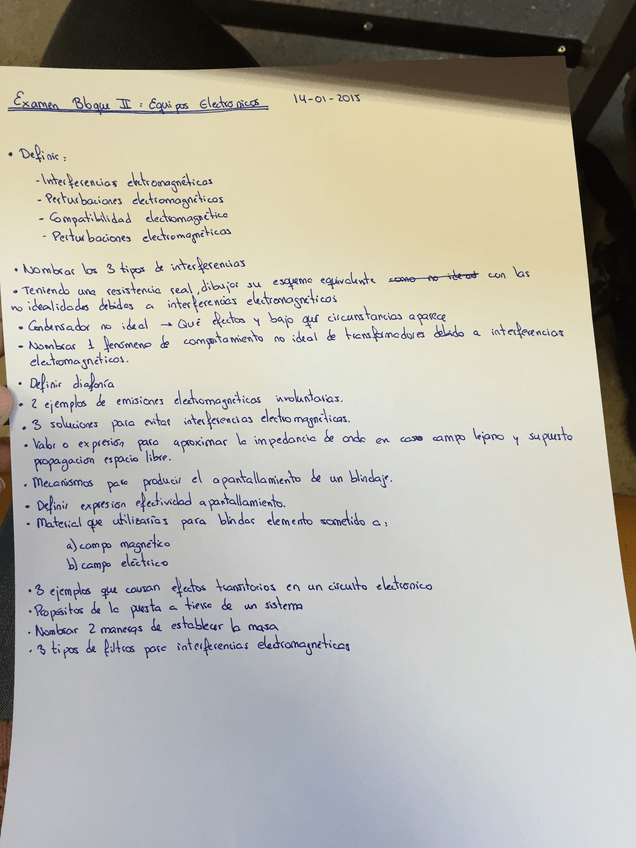 Examen Bloque II: Equipos Electronicos 14-01-2015
• Definir:
- Interferencias elctromagnéticas
- Perturbaciones electromagnéticas
- Compatibilidad electromagnética
- Perturbaciones electromagnéticas
• Nombrar los 3 tipos de interferencias
• Teniendo una resistencia real, dibujar su esquema equivalente como no ideal con las
no idealidades debidas a interferencias electromagnéticas
• Condensador no ideal → Qué efectos y bajo que circunstancias aparece
• Nombrar 1 fenómeno de comportamiento no ideal de transformadores debido a interferencias
electromagnéticas.
• Definir diafonía
• 2 ejemplos de emisiones electromagnéticas involuntarias.
• 3 soluciones para evitar interferencias electromagnéticas.
• Valor o expresión para aproximar la impedancia de onda en caso campo lejano y supuesto
propagación espacio libre.
• Mecanismos para producir el apantallamiento de un blindaje.
• Definir expresion efectividad apantallamiento.
• Material que utilizarías para blindar elemento sometido a:
a) campo magnético
b) campo eléctrico
• 3 ejemplos que causan efectos transitorios en un circuito electronico
• Propósitos de la puesta a tierra de un sistema
• Nombrar 2 maneras de establecer la masa
• 3 tipos de filtros para interferencias electromagnéticas